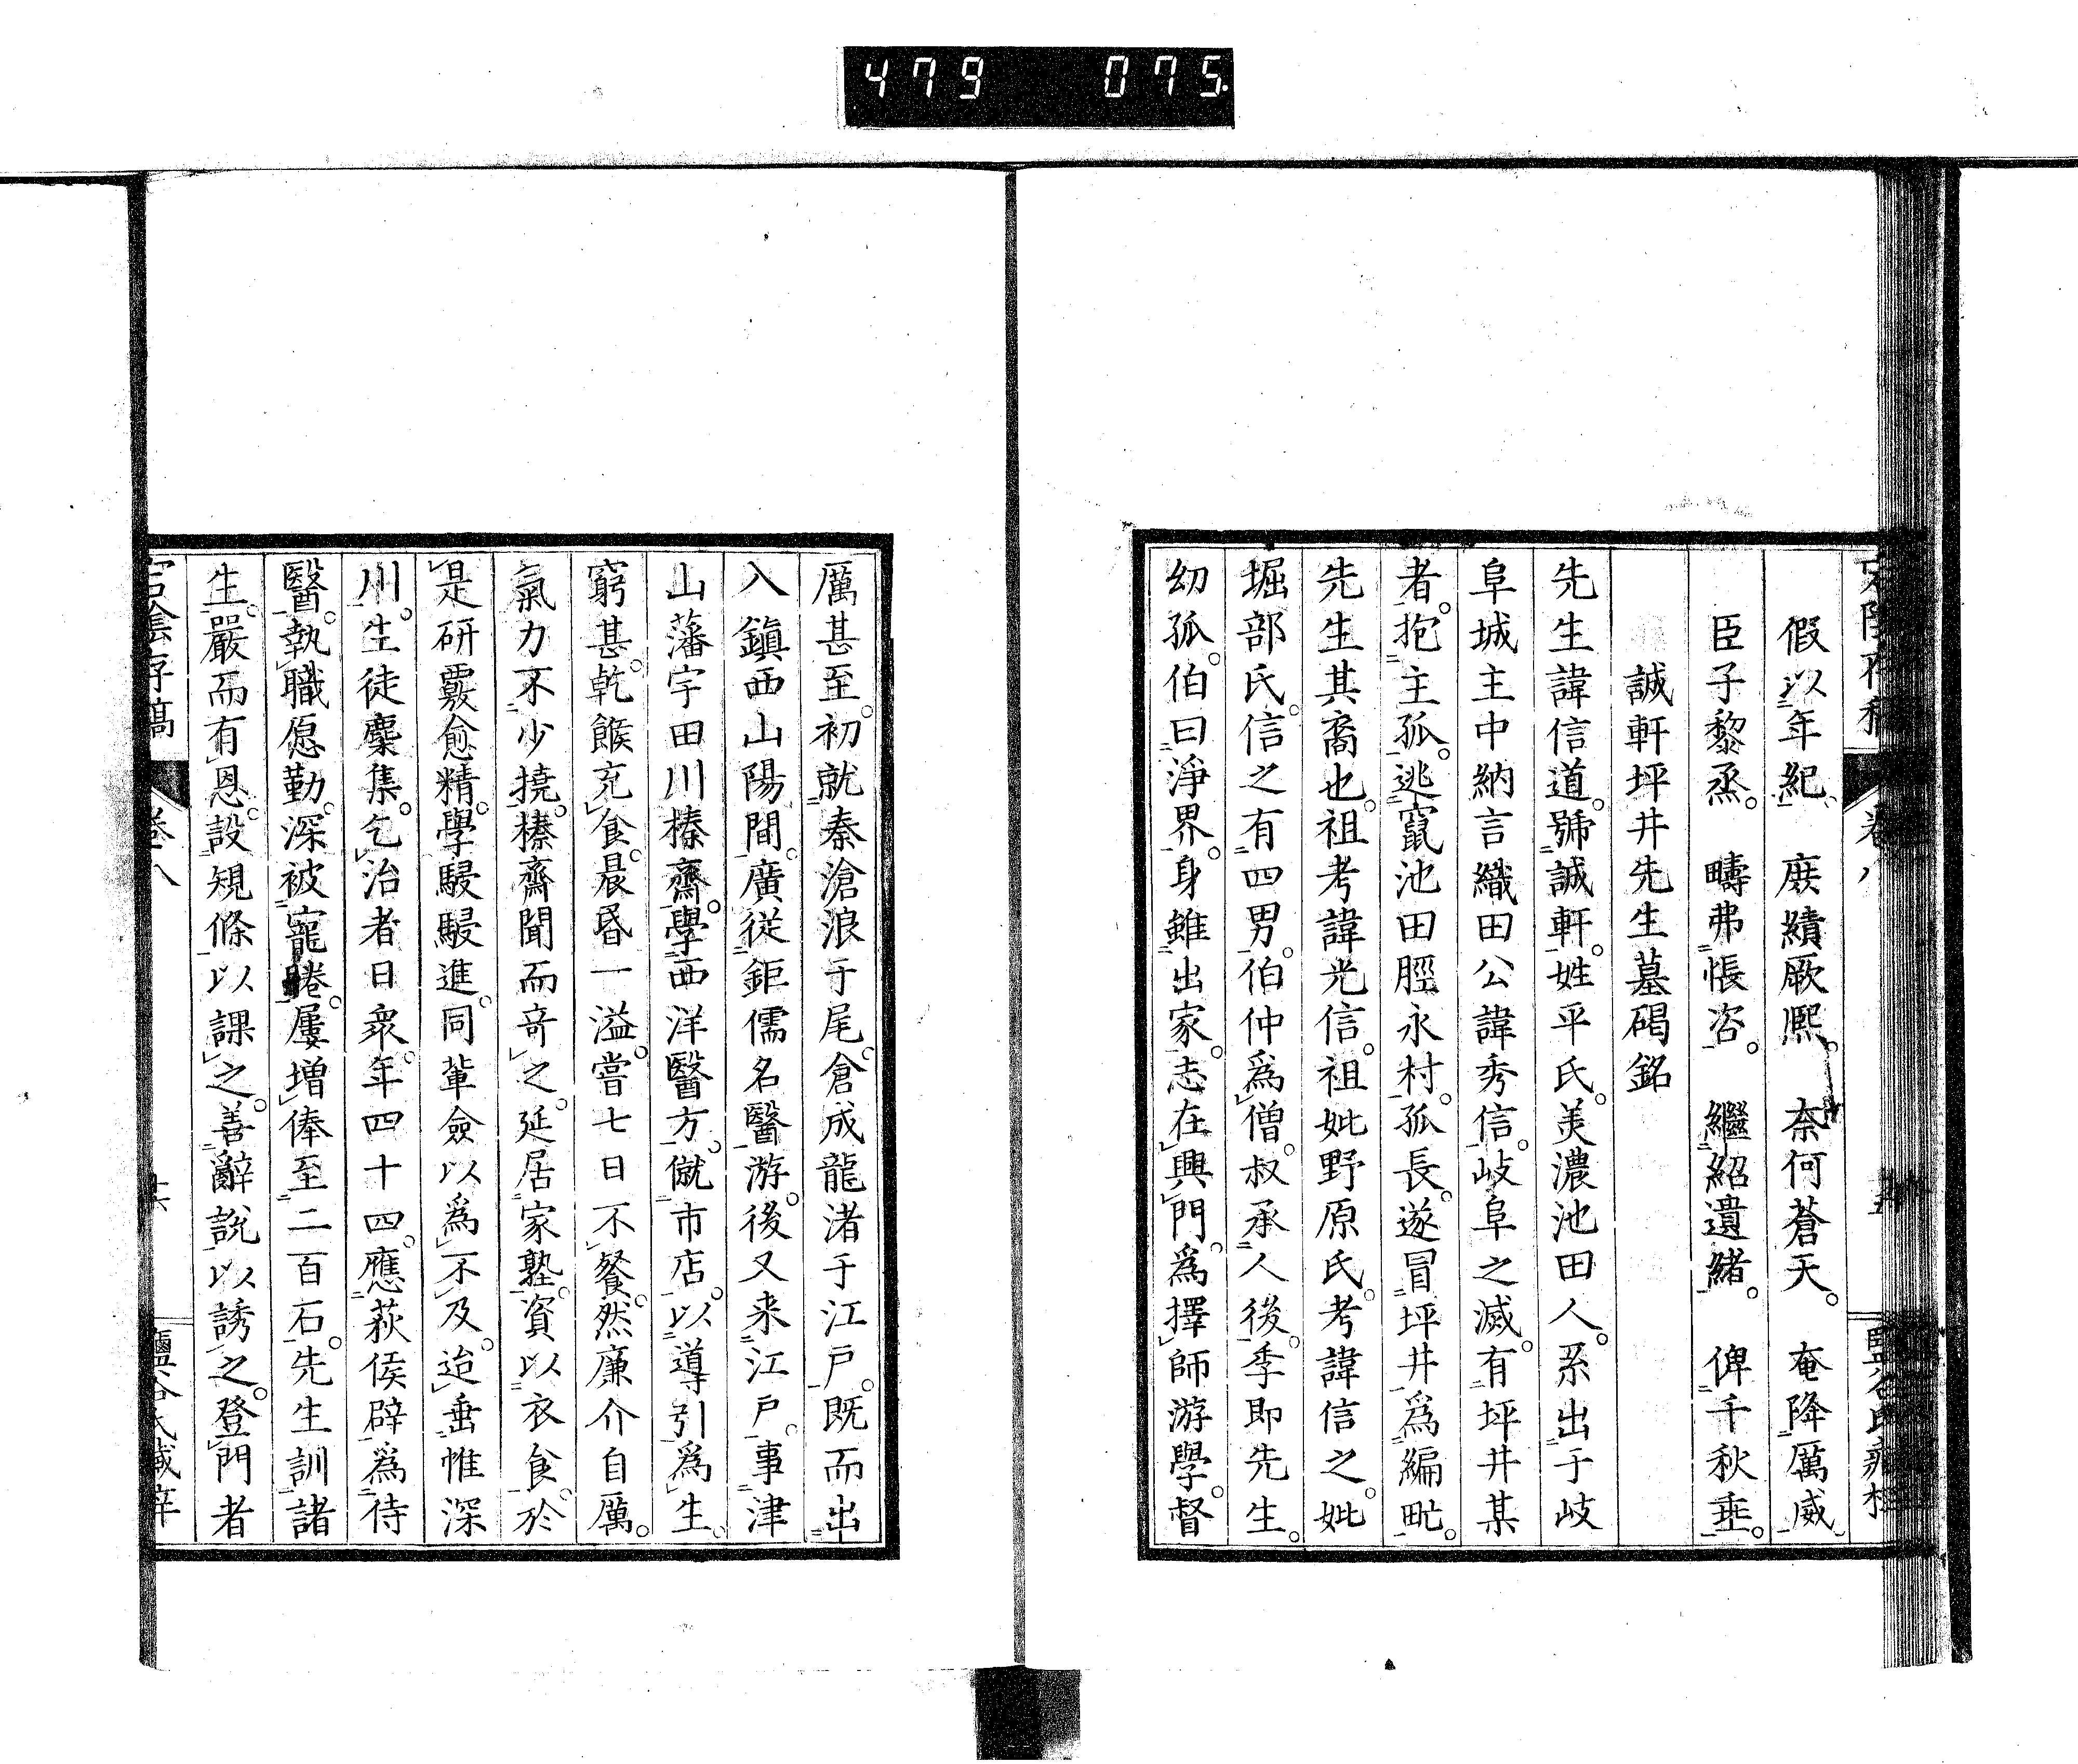 479 075
假以年紀。 庻績厥熈。 奈何蒼天。 奄降厲威
臣子黎烝。 疇弗悵咨。 繼紹遺緒。 俾千秋垂。
誠軒坪井先生墓碣銘
先生諱信道。號誠軒。姓平氏。美濃池田人。系出于岐
阜城主中納言織田公諱秀信。岐阜之滅。有坪井某
者。抱主孤。逃竄池田脛永村。孤長。遂冒坪井。爲編甿。
先生其裔也。祖考諱光信。祖妣野原氏。考諱信之。妣
堀部氏。信之有四男。伯仲爲僧。叔承人後。季即先生。
幼孤。伯曰淨界。身雖出家。志在興門。爲擇師游學。督
厲甚至。初就秦滄浪于尾。倉成龍渚于江戸。既而出
入鎭西山陽間。廣從鉅儒名醫游。後又来江戸。事津
山藩宇田川榛齋。學西洋醫方。僦市店。以導引爲生。
窮甚。乾餱充食。晨昏一溢。嘗七日不餐。然廉介自厲。
氣力不少撓。榛齋聞而奇之。延居家塾。資以衣食。於
是研覈愈精。學駸駸進。同輩僉以爲不及。迨垂帷深
川。生徒麇集。乞治者日衆。年四十四。應萩侯辟。爲侍
醫。執職愿勤。深被寵睠。屢増俸至二百石。先生訓諸
生。嚴而有恩。設規條以課之。善辭說以誘之。登門者
宕陰存稿 卷八